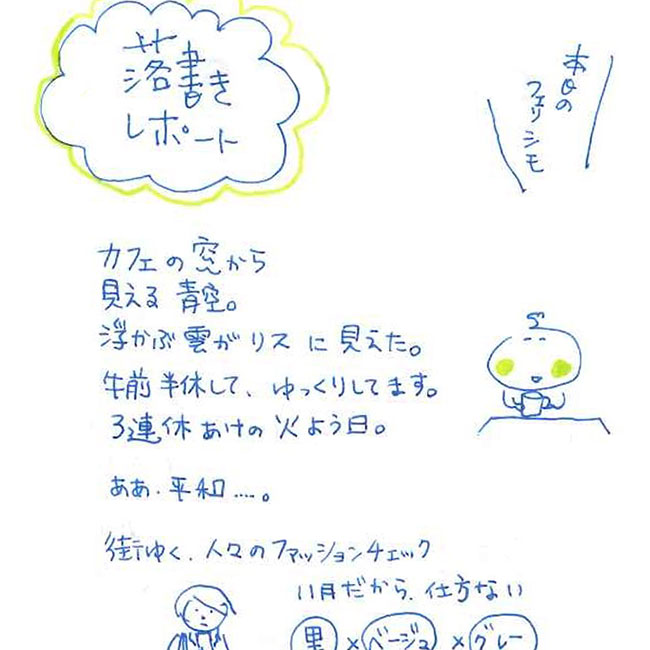 落書き
レポート
本日の
フェリシモ
カフェの窓から
見える青空。
浮かぶ雲がリスに見えた。
午前半休して、ゆっくりしてます。
3連休あけの火よう日。
ああ、平和……。
街ゆく、人々のファッションチェック
11月だから、仕方ない
黒×ベージュ×グレー